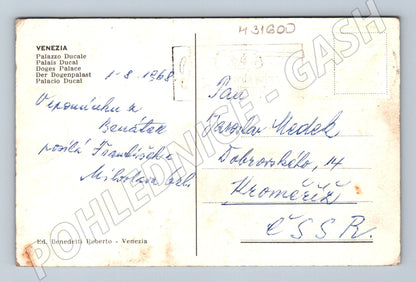 M31600
VENEZIA
Palazzo Ducale
Palais Ducal
Doges Palace
Der Dogenpalast
Palacio Ducal
1-8. 1968
Vzpomínku z
Benátek
posílá Františka
Miloslava
Pan
Jaroslav Medek
Dobrovského, 14
Kroměříž
ČSSR.
Ed. Benedetti Roberto - Venezia
POHLEDNICE - GASH